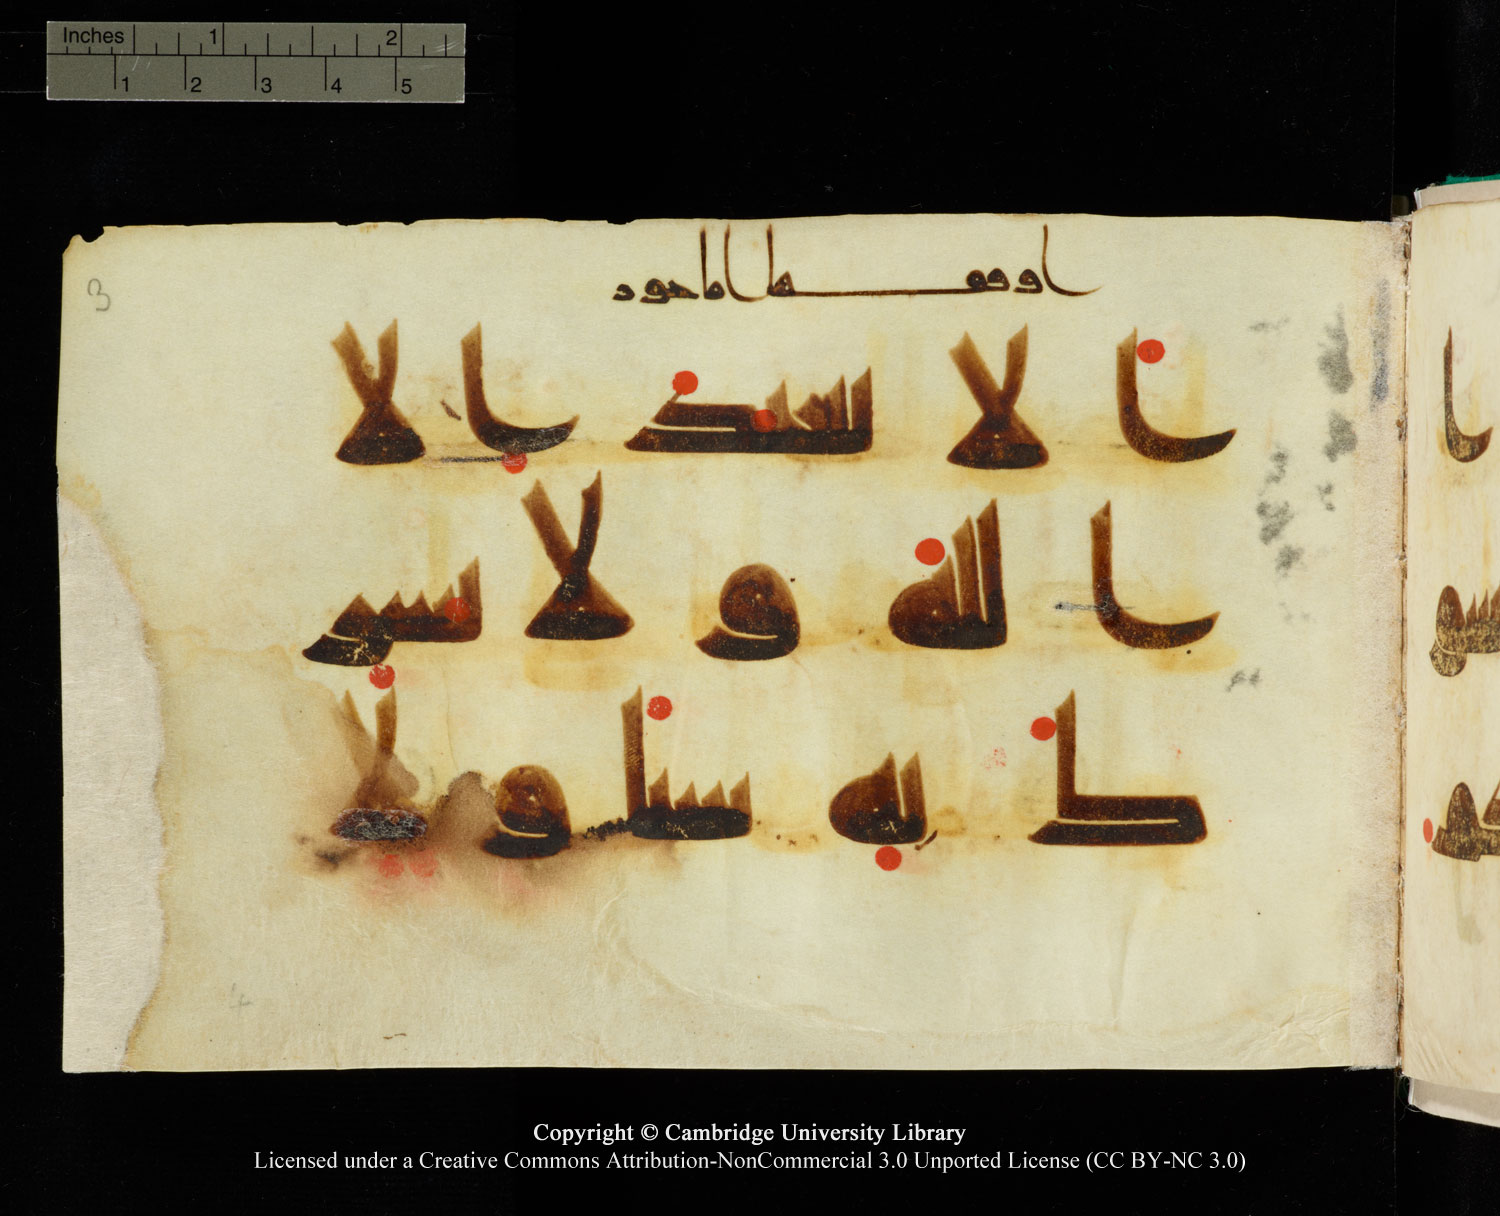 Inches 1 2
1 2 3 4 5
3
اوقفه اماجور
ا لا نعبد ا لا
ا لله و لا نشر
ك به شيا و لا
Copyright © Cambridge University Library
Licensed under a Creative Commons Attribution-NonCommercial 3.0 Unported License (CC BY-NC 3.0)